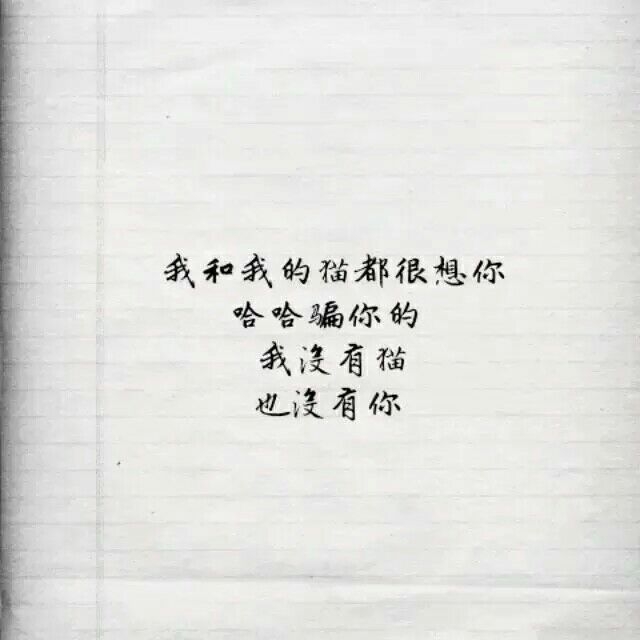 我和我的猫都很想你
哈哈骗你的
我沒有猫
也沒有你